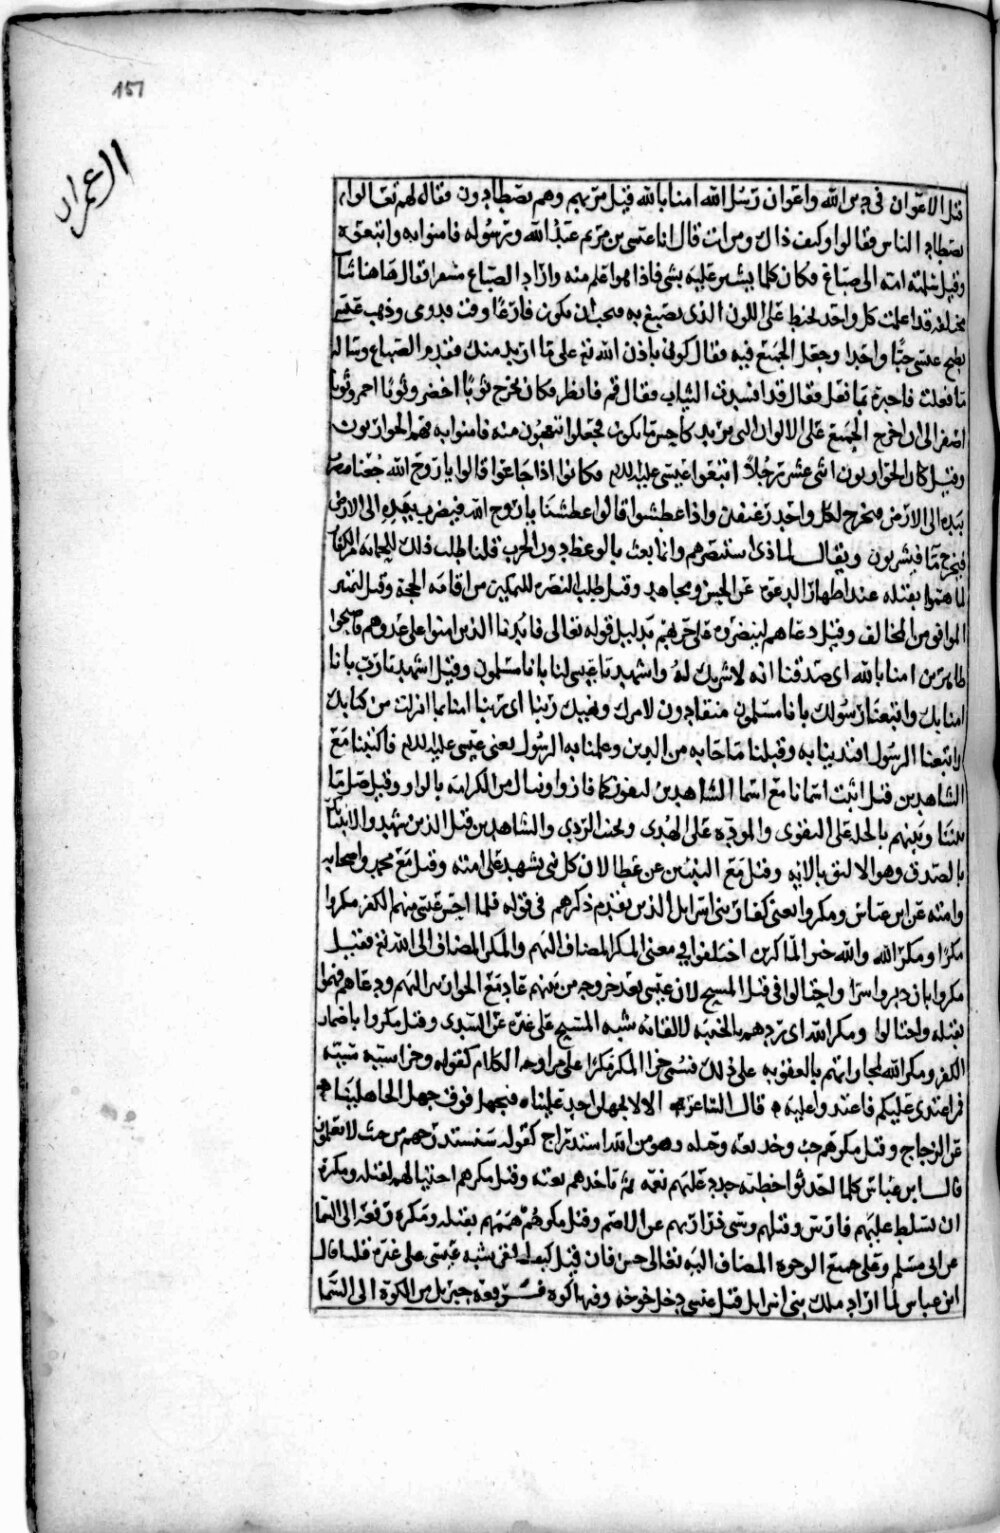 157
ال عمران
قيل الاعوان في دين الله واعوان رسل الله امنا بالله قيل مر بهم وهم يصطادون فقال لهم تعالوا
نصطاد الناس فقالوا وكيف ذاك ومن انت قال انا عيسى بن مريم عبد الله ورسوله فامنوا به واتبعوه
وقيل سلمته امه الى صباغ فكان كلما يشير عليه بشي فاذا هو اعلم منه واراد الصباغ سفرا فقال هاهنا ثياب
مختلفة قد اعلمت كل واحد بخيط على اللون الذي يصبغ به فيجب ان يكون فارغا وقت قدومي وذهب
فطبخ عيسى حبا واحدا وجعل الجميع فيه فقال كوني باذن الله تع على ما اريد منك فقدم الصباغ وساله
ما فعلت فاخبره بما فعل فقال قد افسدت الثياب فقال قم فانظر فكان يخرج ثوبا اخضر وثوبا احمر وثوبا
اصفر الى ان اخرج الجميع على الالوان التي يريد كاحسن ما يكون فجعلوا يتعجبون منه فامنوا به فهم الحواريون
وقيل كان الحواريون اثنى عشر رجلا اتبعوا عيسى عليه السلام فكانوا اذا جاعوا قالوا يا روح الله جعنا فيضرب
بيده الى الارض فيخرج لكل واحد رغيفين واذا عطشوا قالوا عطشنا يا روح الله فيضرب بيده الى الارض
فيخرج ما فيشربون ويقال لماذا استنصرهم وانما بعث بالوعظ دون الحرب قلنا طلب ذلك للحماية من الكفار
لما هموا بقتله عند اظهار الدعوة عن الحسن ومجاهد وقيل طلب النصرة للتمكين من اقامة الحجة وقيل لتميز
الموافق من المخالف وقيل دعاهم لينصروه على حربهم بدليل قوله تعالى فايدنا الذين امنوا على عدوهم فاصبحوا
ظاهرين امنا بالله اي صدقنا انه لا شريك له واشهد يا عيسى لنا بانا مسلمون وقيل اشهد يا رب بانا
امنا بك واتبعنا رسولك بانا مسلمون منقادون لامرك ونهيك ربنا اي يا ربنا امنا بما انزلت من كتابك
واتبعنا الرسول اقتدينا به وقبلنا ما جا به من الدين وعملنا به الرسول يعني عيسى عليه السلام فاكتبنا مع
الشاهدين قيل اثبت اسمانا مع اسما الشاهدين لنفوز كما فازوا وننال من الكرامة ما نالوا وقيل صل ما
بيننا وبينهم بالخلة على التقوى والمودة على الهدى وتجنب الردى والشاهدين قيل الذين شهدوا لانبيائك
بالصدق وهو الاليق بالاية وقيل مع النبيين عن عطا لان كل نبي شهيد على امته وقيل مع محمد واصحابه
وامته عن ابن عباس ومكروا يعني كفار بني اسرايل الذين تقدم ذكرهم في قوله فلما احس عيسى منهم الكفر مكروا
مكرا ومكر الله والله خير الماكرين اختلفوا في معنى المكر المضاف اليهم والمكر المضاف الى الله تع فقيل
مكروا بان دبروا سرا واحتالوا في قتل المسيح لان عيسى بعد خروجه من بينهم عاد مع الحواريين اليهم ودعاهم فهموا
بقتله واحتالوا ومكر الله اي ردهم بالخيبة لالقائه شبه المسيح على غيره عن السدي وقيل مكروا باضمار
الكفر ومكر الله لمجازاتهم بالعقوبة على ذلك فسمي جزا المكر مكرا على مزاوجة الكلام كقوله وجزا سيئة سيئة
فمن اعتدى عليكم فاعتدوا عليه قال الشاعر الا لا يجهلن احد علينا فنجهل فوق جهل الجاهلينا
عن الزجاج وقيل مكرهم خب وخديعة وحيلة وهو من الله استدراج كقوله سنستدرجهم من حيث لا يعلمون
قال ابن عباس كلما احدثوا خطيئة جدد عليهم نعمة ثم ياخذهم بغتة وقيل مكرهم احتيالهم لقتله ومكره
ان يسلط عليهم فارس وقتلهم وسبى ذراريهم عن الاصم وقيل مكرهم هممهم بقتله ومكره رفعه الى السما
عن ابي مسلم وعلى جميع الوجوه المضاف اليه تعالى حسن فان قيل كيف القى شبه عيسى على غيره قلنا قال
ابن عباس لما اراد ملك بني اسرايل قتل عيسى دخل خوخة وفيها كوة فرفعه جبريل من الكوة الى السما